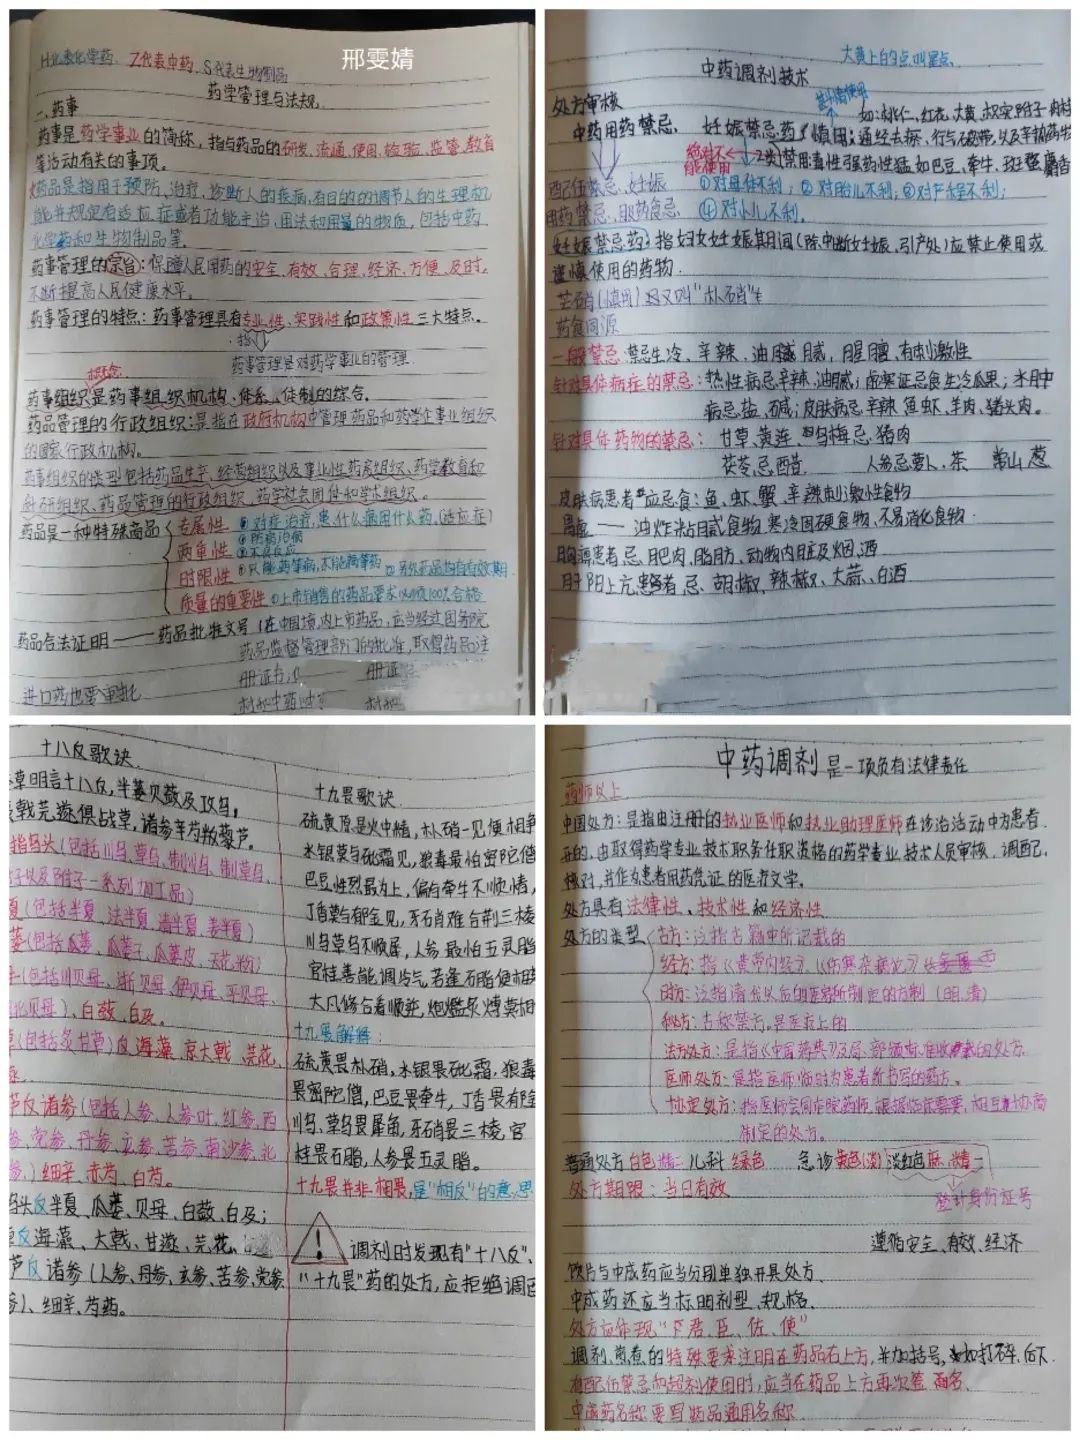 H代表化学药. Z代表中药. S代表生物制品
邢雯婧
药学管理与法规.
一、药事
药事是药学事业的简称，指与药品的研发、流通、使用、检验、监管、教育
等活动有关的事项。
药品是指用于预防、治疗、诊断人的疾病，有目的的调节人的生理机
能并规定有适应症或者功能主治、用法和用量的物质，包括中药
化学药和生物制品等。
药事管理的宗旨：保障人民用药的安全、有效、合理、经济、方便、及时，
不断提高人民健康水平。
药事管理的特点：药事管理具有专业性、实践性和政策性三大特点。
指
药事管理是对药学事业的管理
药事组织是药事组织机构、体系、体制的综合。
药品管理的行政组织：是指在政府机构中管理药品和药学企事业组织
的国家行政机构。
药事组织的类型包括药品生产、经营组织以及事业性药房组织、药学教育和
科研组织、药品管理的行政组织、药学社会团体和学术组织。
药品是一种特殊商品
专属性 ①对症治疗，患什么病用什么药.(适应症)
两重性 ①防病治病 ②不良反应
时限性 ①只能药等病，不能病等药 ②另外药品均有有效期
质量的重要性 ①上市销售的药品要求必须100%合格
药品合法证明——药品批准文号(在中国境内上市药品，应当经过国务院
药品监督管理部门的批准，取得药品注
册证书
进口药也要审批
大黄上的点叫星点.
中药调剂技术
处方审核
甚忌使用
中药用药禁忌. 妊娠禁忌药
慎用：通经去瘀、行气破滞，以及辛热药物
如：桃仁、红花、大黄、枳实、附子、肉桂
绝对不能使用
2类
禁用：毒性强药性猛如巴豆、牵牛、斑蝥、麝香
配伍禁忌、妊娠 ①对母体不利；②对胎儿不利；③对产程不利；
用药禁忌、服药食忌 ④对小儿不利。
妊娠禁忌药：指妇女妊娠期间(除中断妊娠、引产处)应禁止使用或
谨慎使用的药物.
芒硝(慎用)
药食同源
一般禁忌：禁忌生冷、辛辣、油腻、腥膻、有刺激性
针对具体病症的禁忌：热性病忌辛辣、油腻；虚寒证忌食生冷瓜果；水肿
病忌盐、碱；皮肤病忌辛辣、鱼虾、羊肉、猪头肉。
针对具体药物的禁忌： 甘草、黄连、乌梅忌猪肉
茯苓忌醋. 人参忌萝卜、茶 常山 葱
皮肤病患者应忌食：鱼、虾、蟹、辛辣刺激性食物
胃虚——油炸粘腻食物、寒冷固硬食物、不易消化食物
胸痹患者忌肥肉、脂肪、动物内脏及烟、酒
肝阳上亢患者忌胡椒、辣椒、大蒜、白酒
十八反歌诀.
草明言十八反，半蒌贝蔹及攻乌，
戟芫遂俱战草，诸参辛芍叛藜芦。
指乌头(包括川乌、草乌、制川乌、制草乌、
子以及附子一系列加工品)
夏(包括半夏、法半夏、清半夏、姜半夏)
蒌(包括瓜蒌、瓜蒌子、瓜蒌皮、天花粉)
(包括川贝母、浙贝母、伊贝母、平贝母、
北贝母)、白蔹、白及。
(包括炙甘草)反海藻、京大戟、芫花、
芦反诸参(包括人参、人参叶、红参、西
参、党参、丹参、玄参、苦参、南沙参、北
参)细辛、赤芍、白芍。
乌头反半夏、瓜蒌、贝母、白蔹、白及；
反海藻、大戟、甘遂、芫花
芦反诸参(人参、丹参、玄参、苦参、党参
参)、细辛、芍药。
十九畏歌诀.
硫黄原是火中精，朴硝一见便相争
水银莫与砒霜见，狼毒最怕密陀僧
巴豆性烈最为上，偏与牵牛不顺情，
丁香莫与郁金见，牙硝难合荆三棱
川乌草乌不顺犀，人参最怕五灵脂
官桂善能调冷气，若逢石脂便相
大凡修合看顺逆，炮爁炙煿莫相
十九畏解释：
硫黄畏朴硝，水银畏砒霜，狼毒
畏密陀僧，巴豆畏牵牛，丁香畏郁金
川乌、草乌畏犀角，牙硝畏三棱，官
桂畏石脂，人参畏五灵脂。
十九畏并非相畏，是"相反"的意思
! 调剂时发现有"十八反"、
"十九畏"药的处方，应拒绝调配
中药调剂是一项负有法律责任
药师以上
中国处方：是指由注册的执业医师和执业助理医师在诊治活动中为患者
开的，由取得药学专业技术职务任职资格的药学专业技术人员审核、调配、
核对，并作为患者用药凭证的医疗文学。
处方具有法律性、技术性和经济性
处方的类型
古方：泛指古籍中所记载的
经方：指《黄帝内经》、《伤寒杂病论》
时方：泛指清代以后的医家所制定的方剂(明、清)
秘方：古称禁方，是医家上的
法定处方：是指《中国药典》及局、部颁布、准收载的处方.
医师处方：是指医师临时为患者所书写的药方。
协定处方：指医师会同本院药师，根据临床需要，相互协商
制定的处方。
普通处方白色 精二 儿科 绿色 急诊 黄色(淡) 淡红色 麻、精一
处方期限：当日有效
登计身份证号
遵循安全、有效、经济
饮片与中成药应当分别单独开具处方.
中成药还应当标明剂型、规格.
处方应体现"君、臣、佐、使"
调剂、煎煮的特殊要求注明在药品右上方，并加括号，如打碎、后下.
有配伍禁忌和超剂使用时，应当在药品上方再次签名.
中成药名称要写药品通用名称